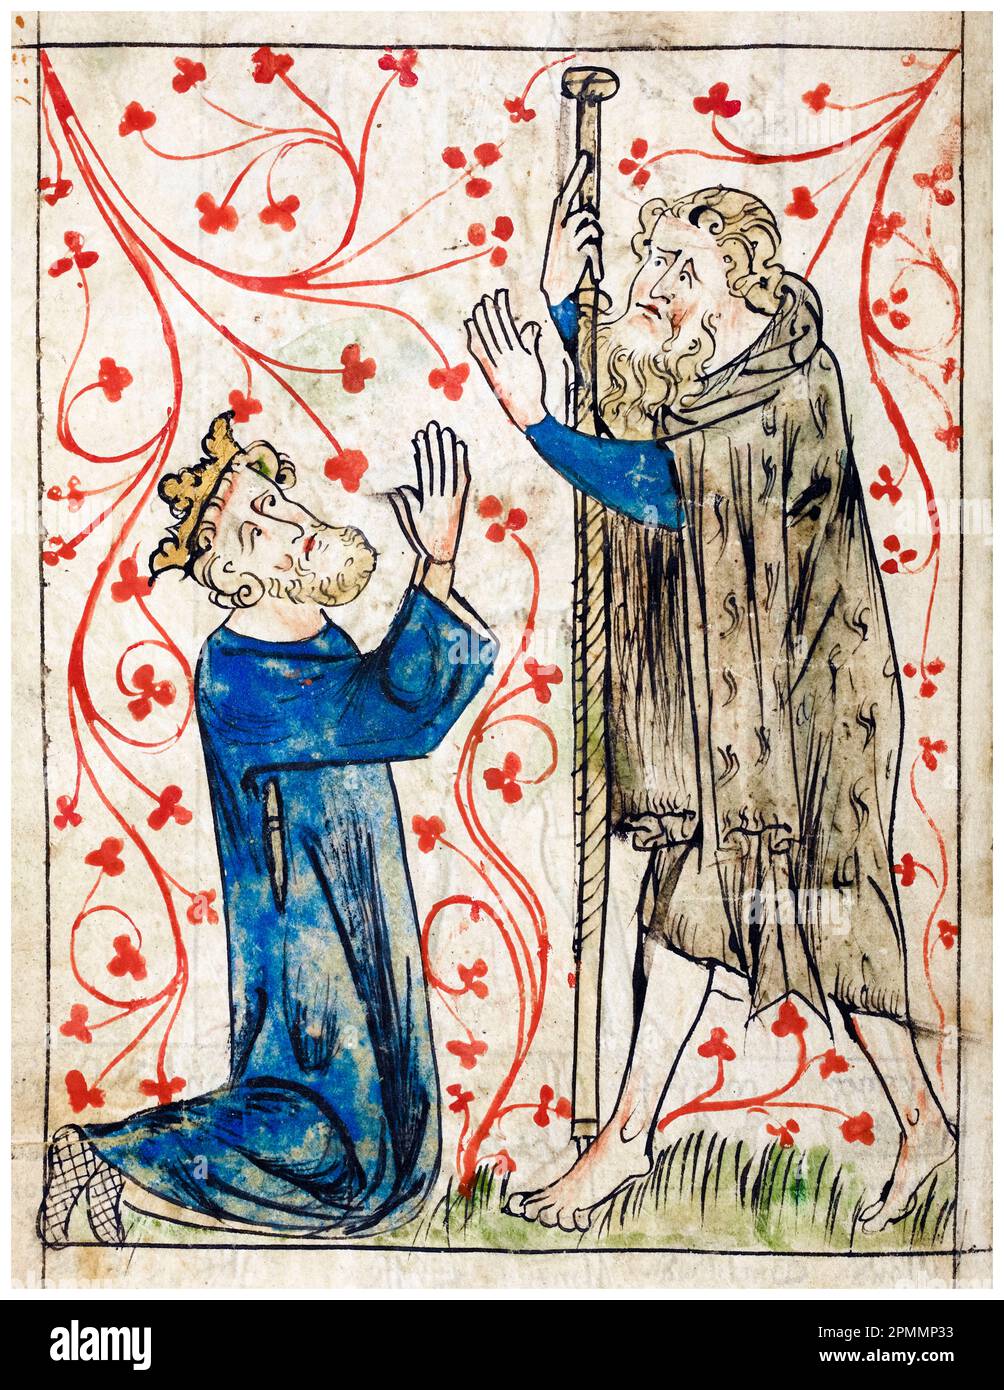 alamy
Image ID: 2PMMP33
www.alamy.com